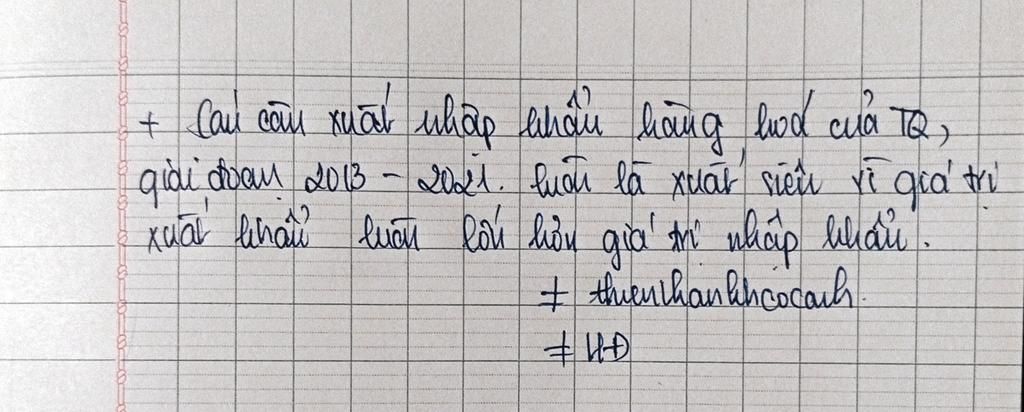 + Cán cân xuất nhập khẩu hàng hoá của TQ,
giai đoạn 2013 - 2021. luôn là xuất siêu vì giá trị
xuất khẩu luôn lớn hơn giá trị nhập khẩu.
≠ thienthankhcocanh.
≠ HĐ